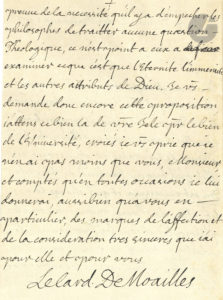 preuve de la necessité qu'il y a d'empecher les
philosophes de traitter aucune question
Theologique, ce n'est point a eux a
examiner ce que c'est que l'Eternité l'immensité
et les autres attributs de Dieu. Je vs
demande donc encore cette proposition
j'attens cela de vtre zele pr le bien
de l'Université, croiés je vs prie que je
n'en ai pas moins que vous, Monsieur
et comptés qu'en toutes occasions je lui
donnerai, aussi bien qu'a vous en
particulier, des marques de l'affection et
de la consideration tres sinceres que j'ai
pour elle et pour vous
Le Card. De Noailles